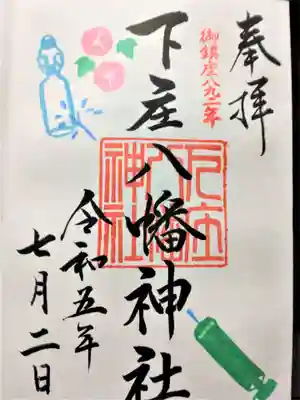 奉拝
御鎮座八九二年
下庄八幡神社
下庄八幡神社
令和五年
七月二日